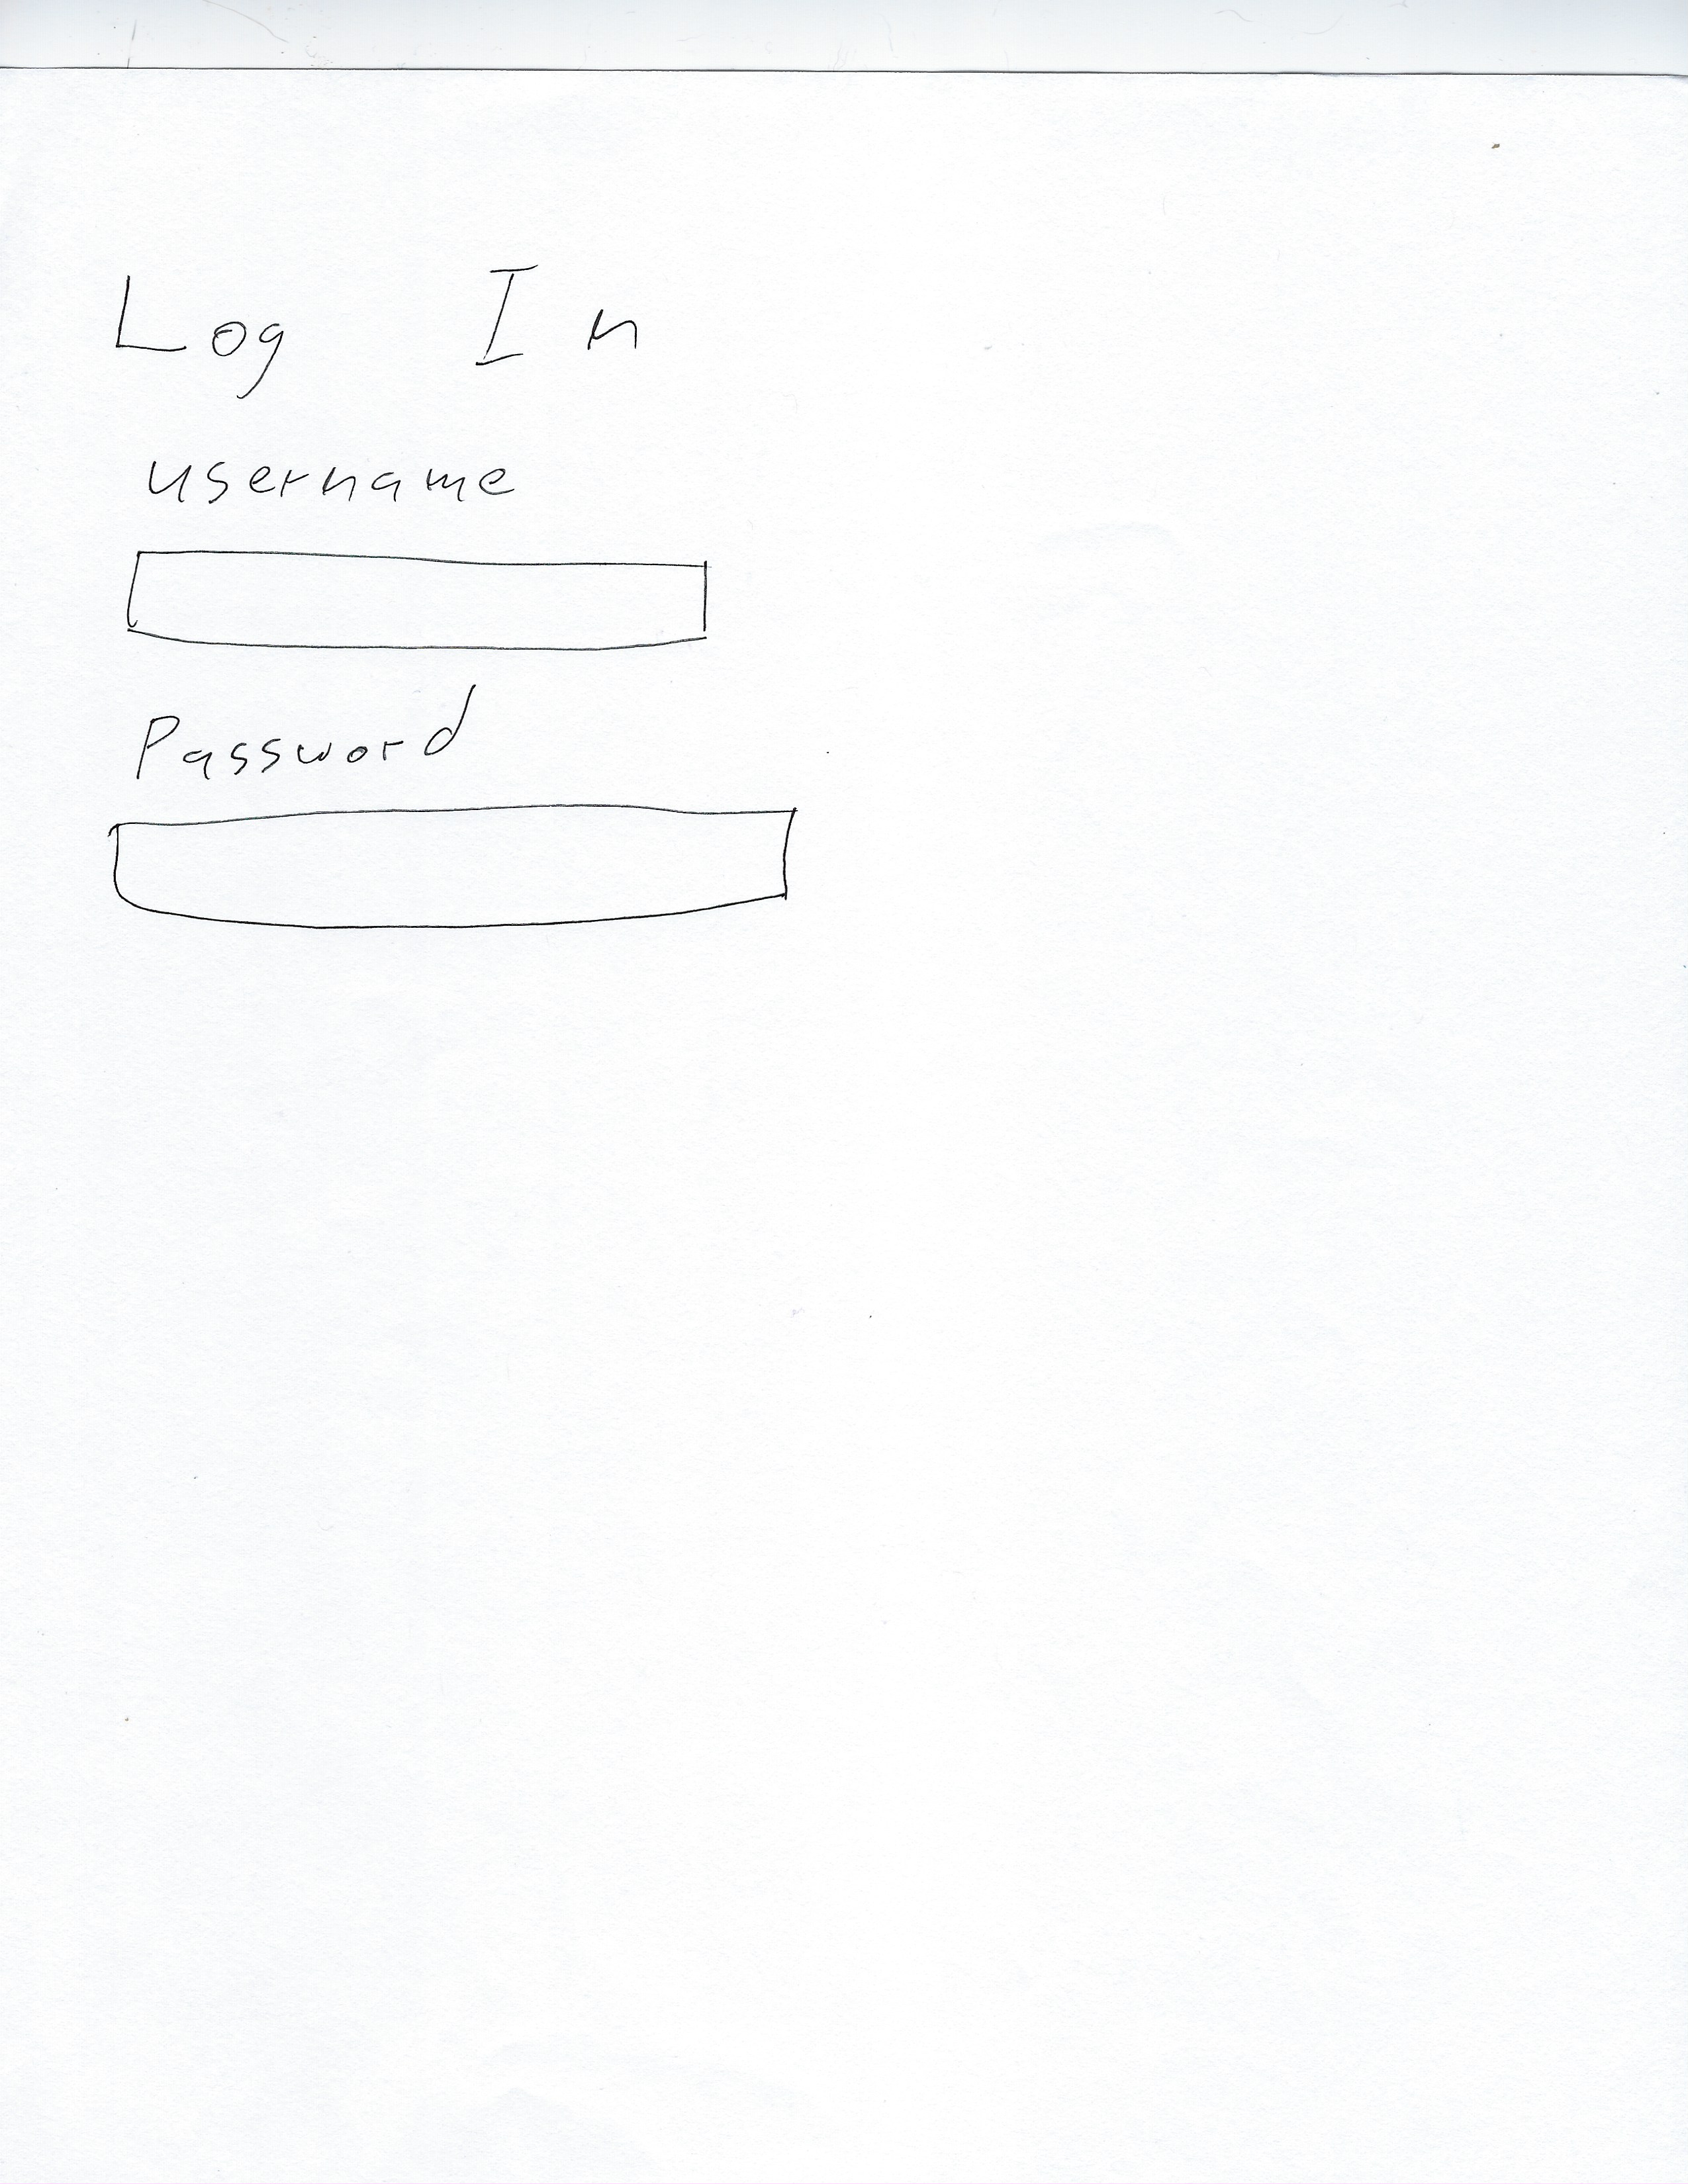 Log In
username
Password